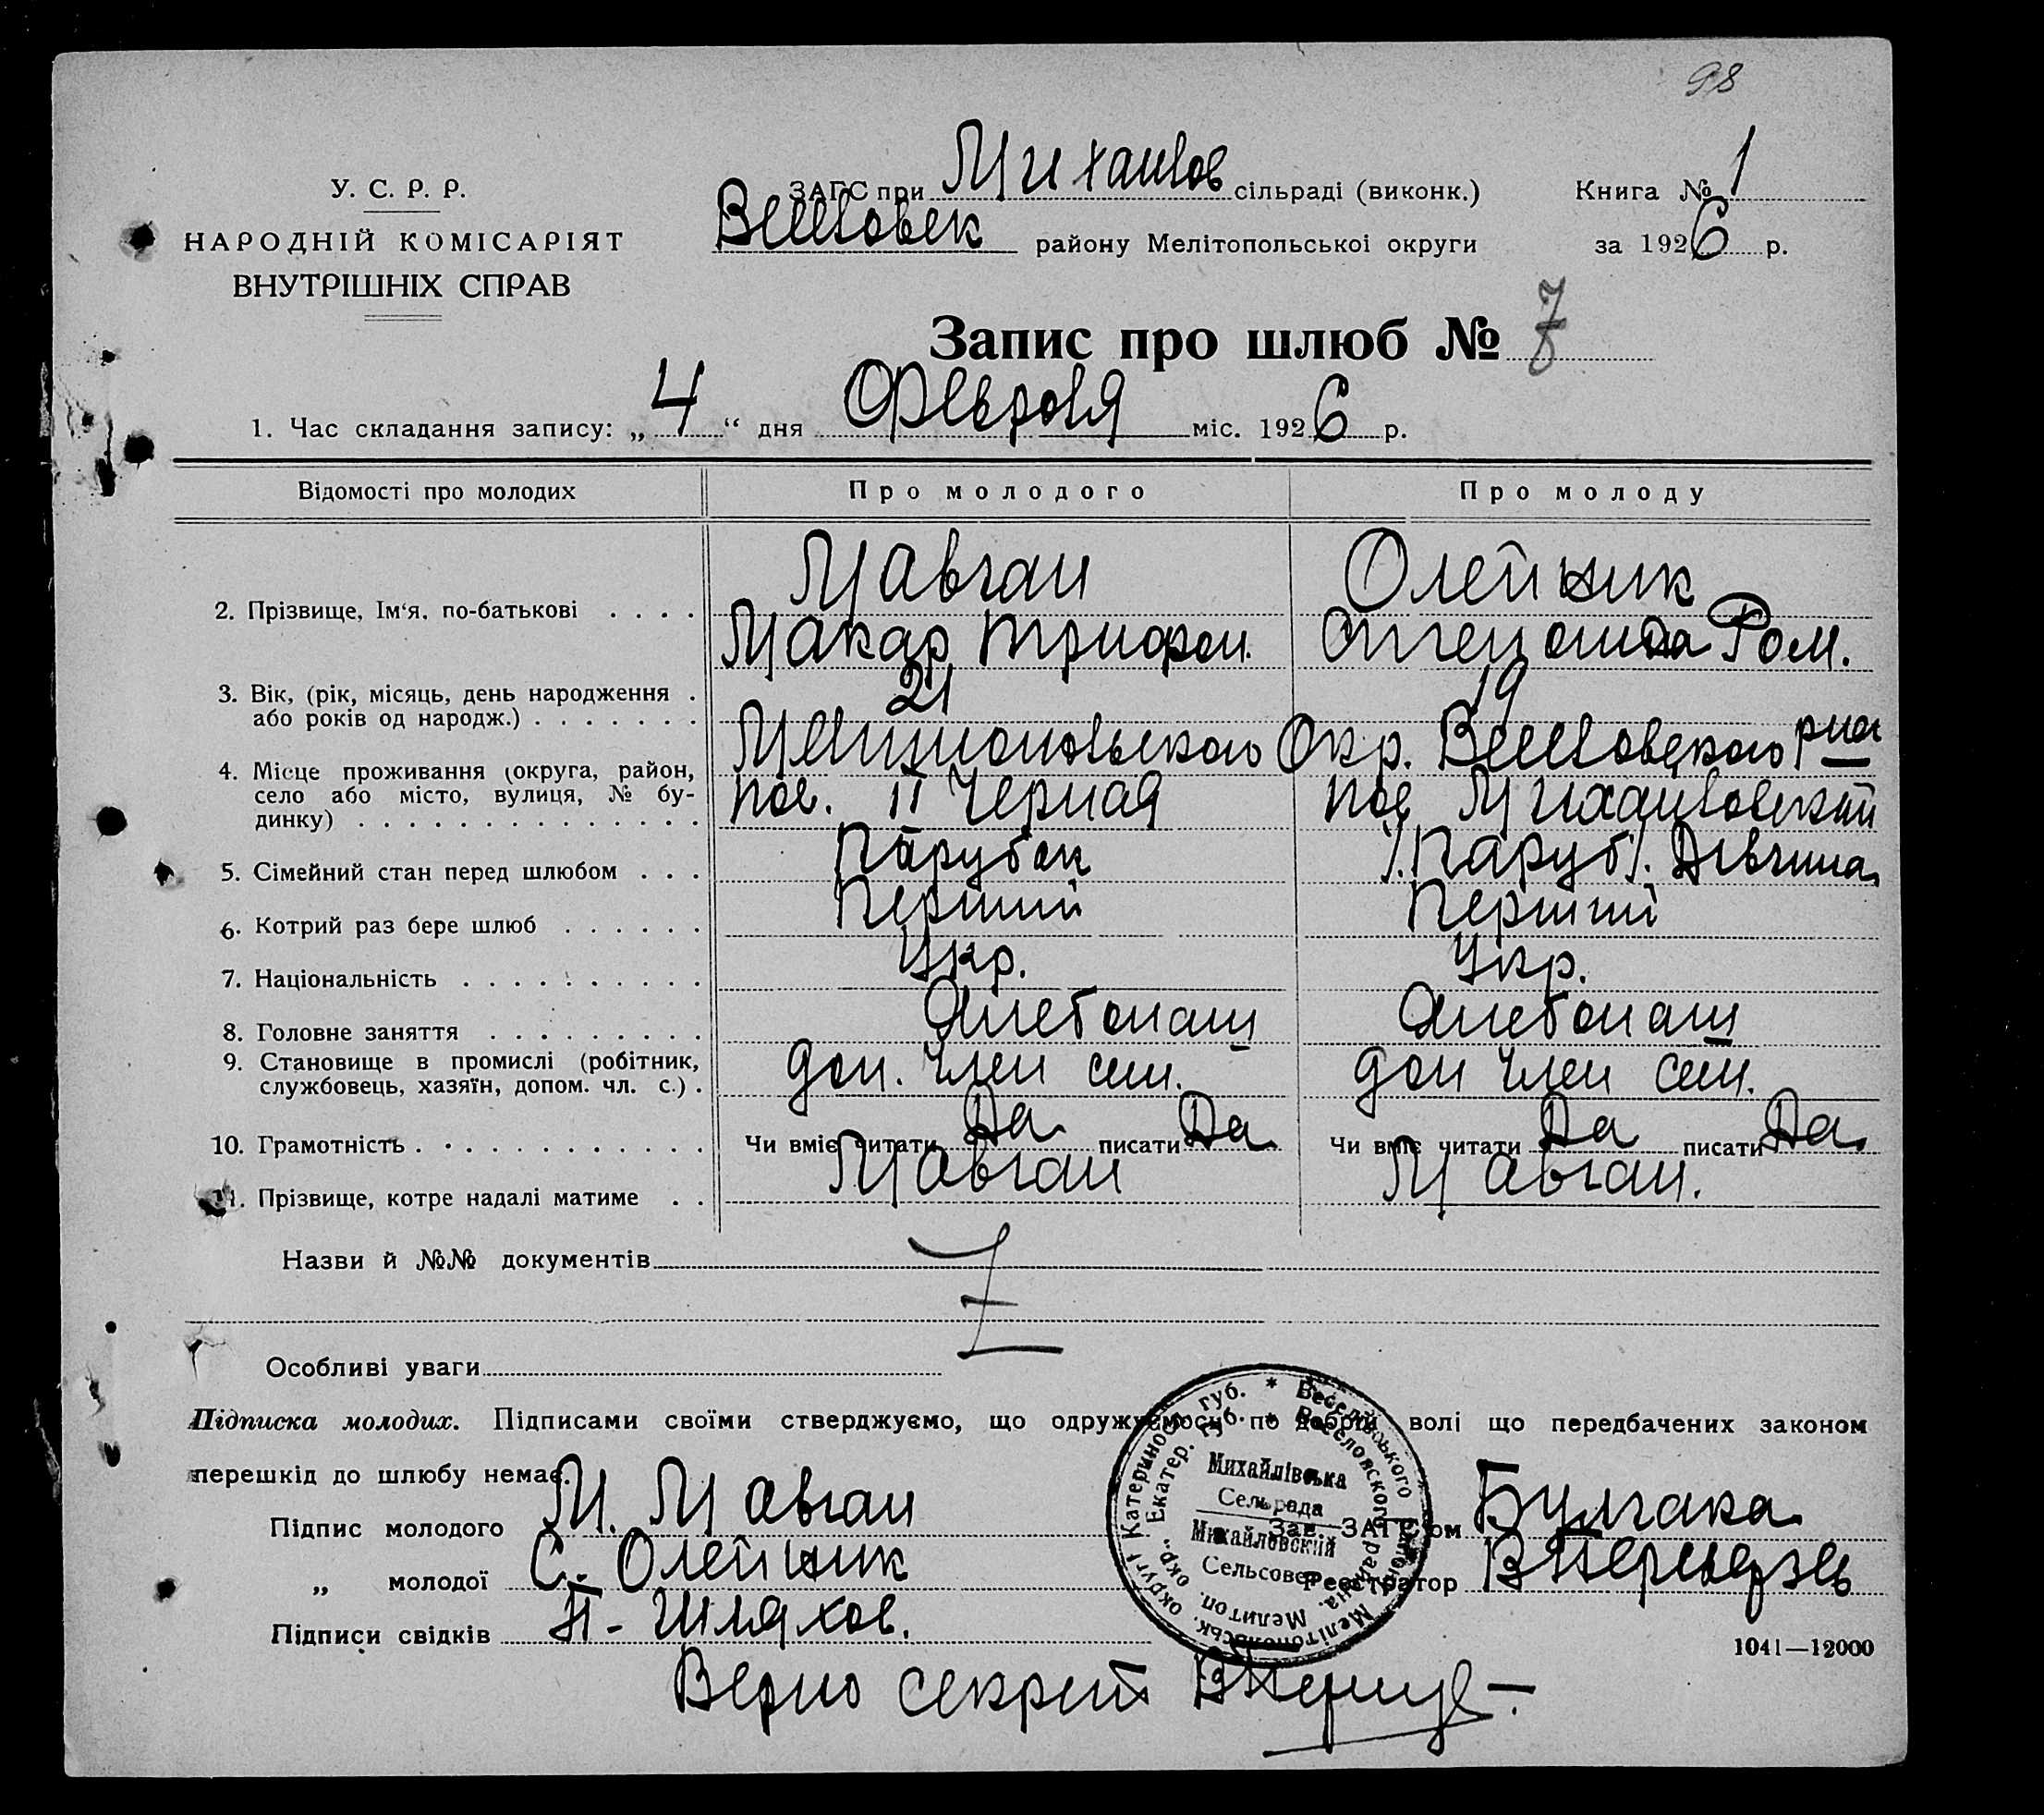 98
У. С. Р. Р.
НАРОДНІЙ КОМІСАРІЯТ
ВНУТРІШНІХ СПРАВ
ЗАГС при Михайлов сільраді (виконк.) Книга № 1
Веселовск району Мелітопольської округи за 1926 р.
Запис про шлюб № 7
1. Час складання запису: „4“ дня Февроля міс. 1926 р.
Відомості про молодих Про молодого Про молоду
2. Прізвище, Ім‘я, по-батькові . . . . Мавган Олейник
Макар Трифон. Ром.
3. Вік, (рік, місяць, день народження . або років од народж.) . . . . . . . 21 19
4. Місце проживання (округа, район, село або місто, вулиця, № будинку) . . . Мелитопольского Окр. Веселовского
пос. II Черная пос Михайловский
5. Сімейний стан перед шлюбом . . . Парубок /.Паруб/. Дівчина
6. Котрий раз бере шлюб . . . . . . Перший Перший
7. Національність . . . . . . . . . . Укр. Укр.
8. Головне заняття . . . . . . . . . Хлебопаш Хлебопаш
9. Становище в промислі (робітник, службовець, хазяїн, допом. чл. с.) . доп. член сем. доп член сем.
10. Грамотність . . . . . . . . . . . . Чи вміє читати Да писати Да Чи вміє читати Да писати Да
11. Прізвище, котре надалі матиме . . Мавган Мавган.
Назви й №№ документів
Особливі уваги
Підписка молодих. Підписами своїми стверджуємо, що одружуємось по добрій волі що передбачених законом
перешкід до шлюбу немає.
Підпис молодого М. Мавган Зав. ЗАГС'ом Булгака
„ молодої С. Олейник Реєстратор
Підписи свідків П- Шляхов.
1041—12000
Верно секрет
Катериносл. губ. * Веселівського району Мелітопольськ. округи
Екатер. губ. * Веселовского района. Мелитоп. окр.
Михайлівська
Сельрада
Михайловский
Сельсовет